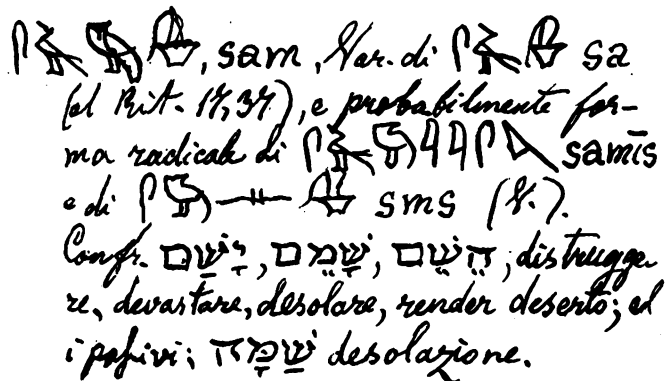 𓋴𓅭𓅓𓊛, sam, Var. di 𓋴𓅭𓊛 sa
(al Rit. 17,37), e probabilmente for-
ma radicale di 𓋴𓅭𓅓𓇋𓇋𓋴 samīs
e di 𓋴𓅓𓊃 sms (V.).
Confr. יָשַׁם, שָׁמֵם, הֵשֵׁם, distrugge
re, devastare, desolare, render deserto; ed
i passivi; שַׁמָּה desolazione.